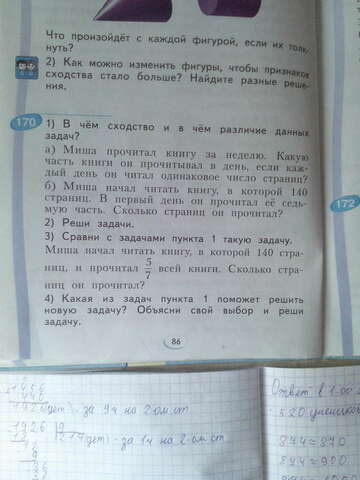 Что произойдёт с каждой фигурой, если их толк-
нуть?
2) Как можно изменить фигуры, чтобы признаков
сходства стало больше? Найдите разные реше-
ния.
170
1) В чём сходство и в чём различие данных
задач?
а) Миша прочитал книгу за неделю. Какую
часть книги он прочитывал в день, если каж-
дый день он читал одинаковое число страниц?
б) Миша начал читать книгу, в которой 140
страниц. В первый день он прочитал её седь-
мую часть. Сколько страниц он прочитал?
2) Реши задачи.
3) Сравни с задачами пункта 1 такую задачу.
Миша начал читать книгу, в которой 140 стра-
ниц, и прочитал 5/7 всей книги. Сколько стра-
ниц он прочитал?
4) Какая из задач пункта 1 поможет решить
новую задачу? Объясни свой выбор и реши
задачу.
172
86
1926 (дет) - за 9ч на 2-ом ст
1926 9
214 (дет) - за 1ч на 2-ом ст
Ответ: в 1-ое
520
874≈870
874≈900